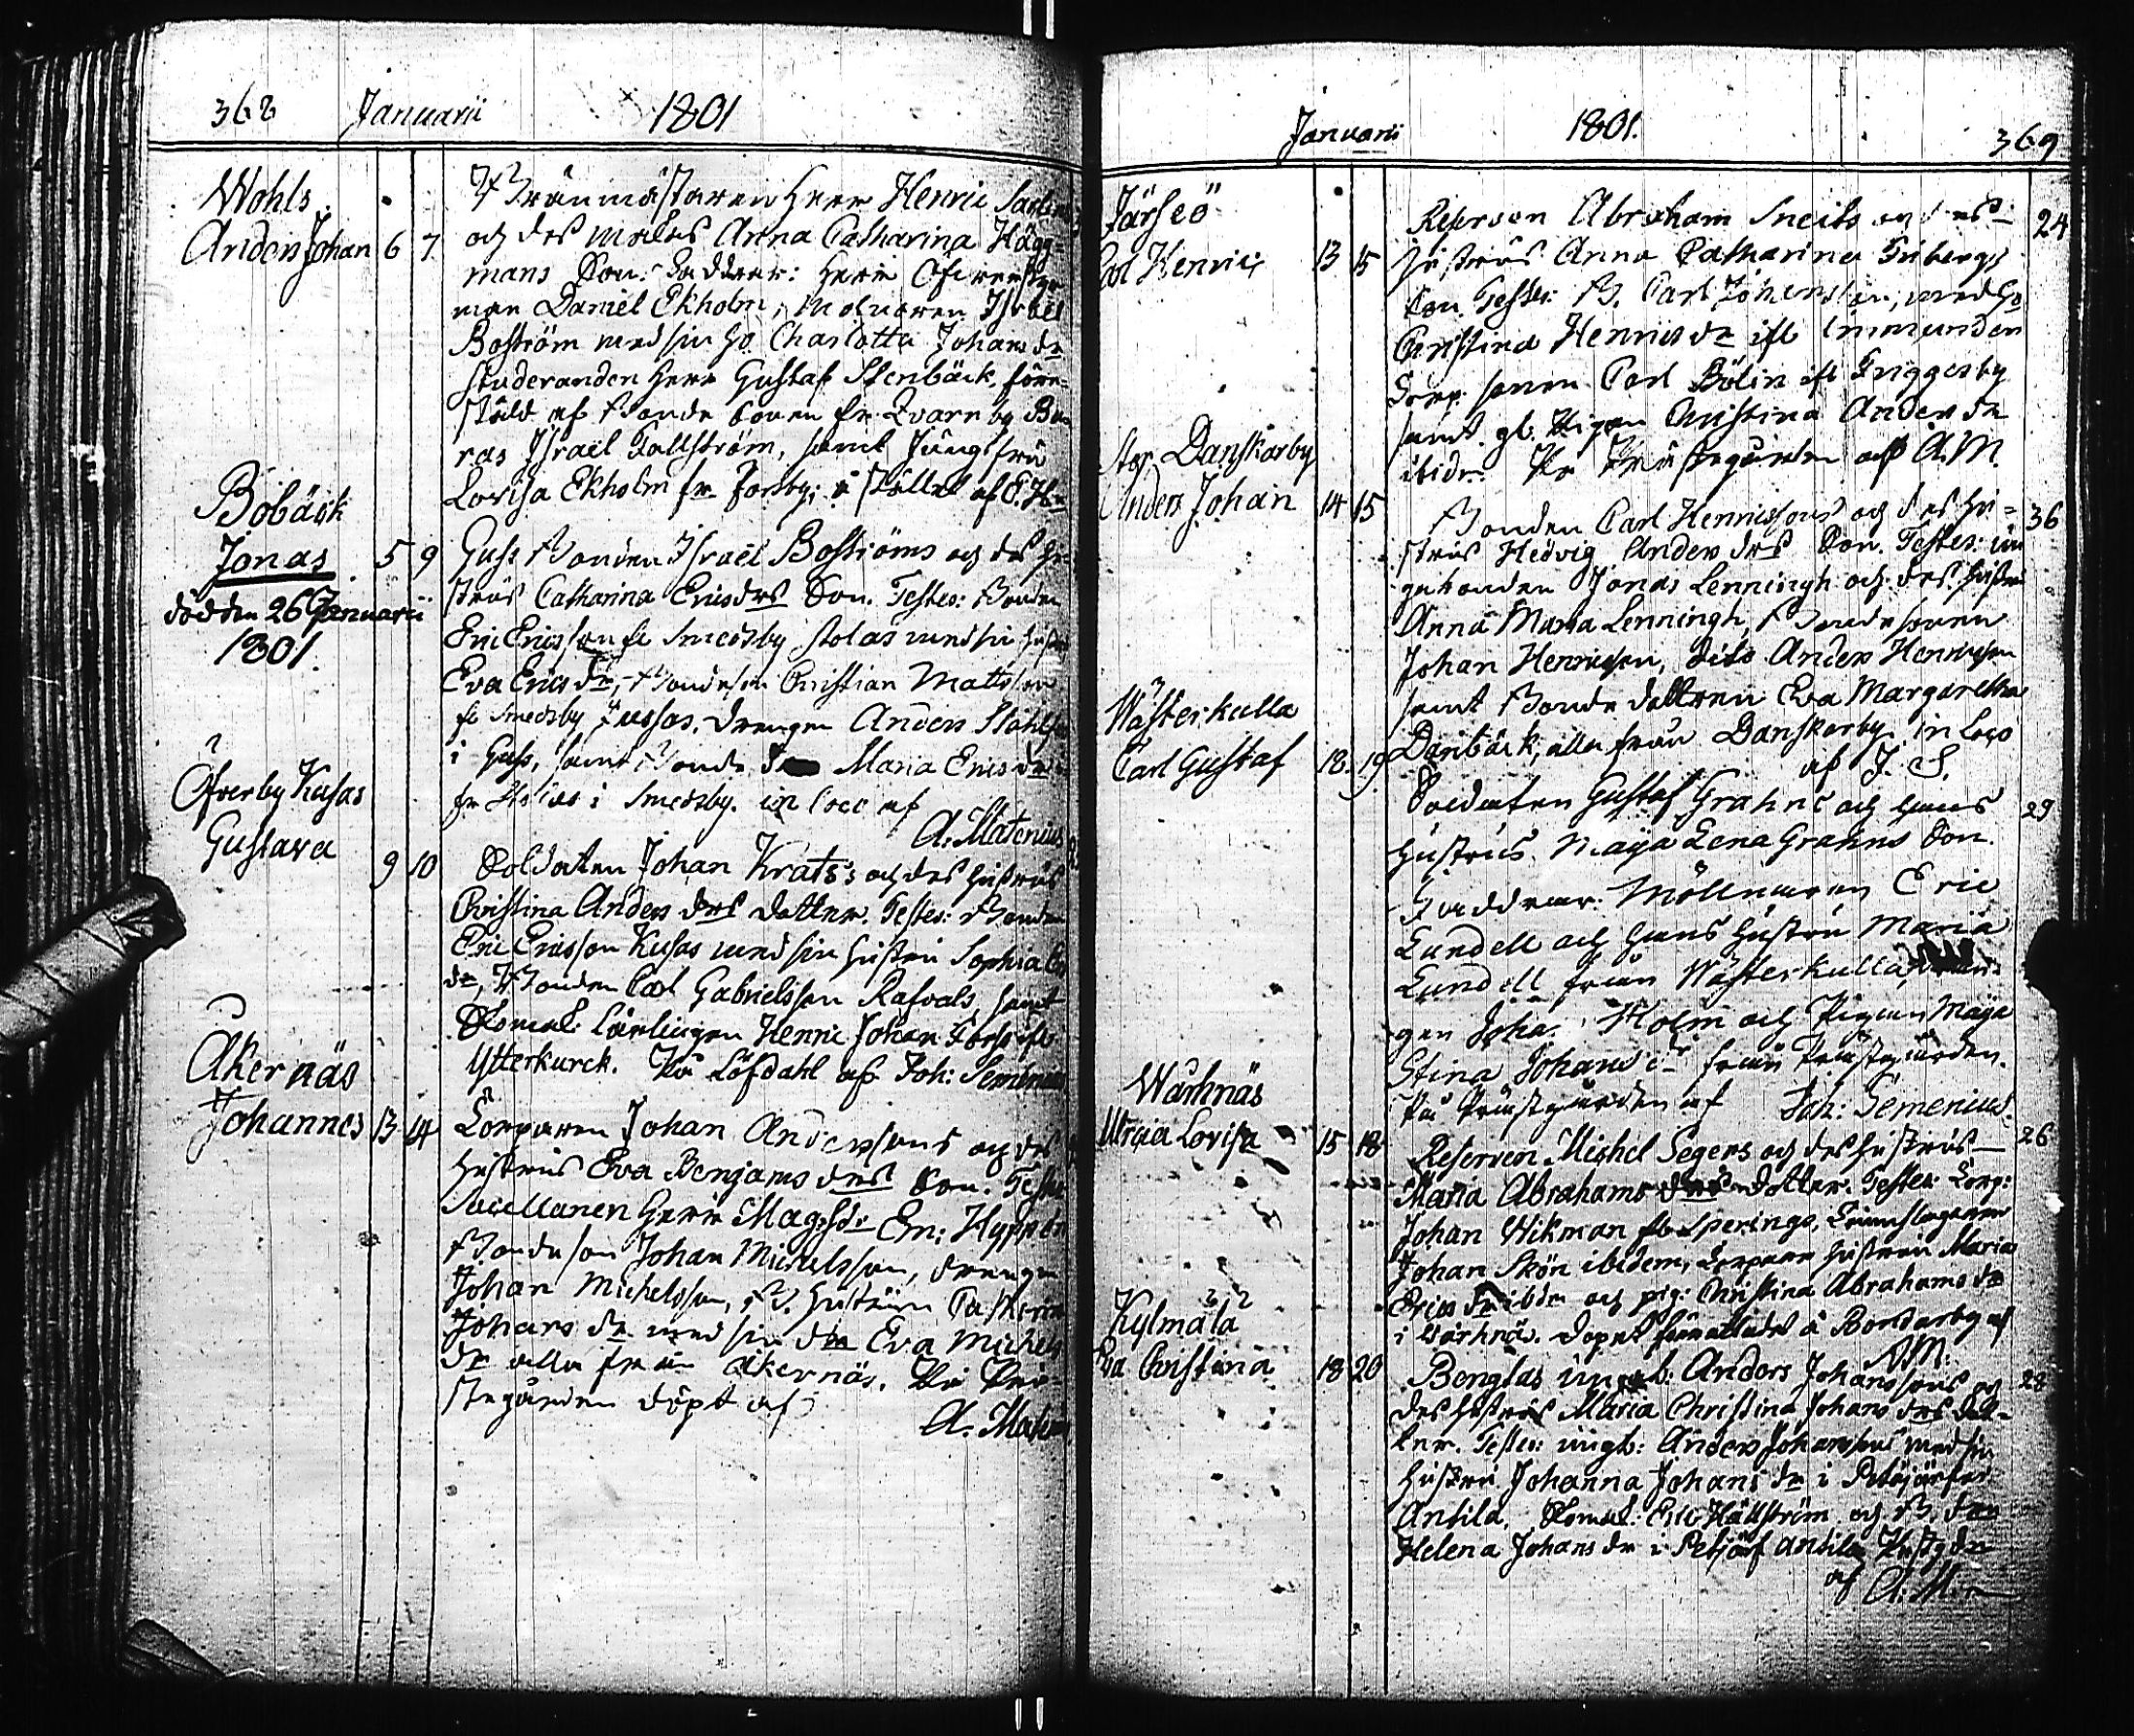 368 Januarii 1801
Wohls
Anders Johan 6 7
Herr Henric
och des makas Anna Catharina Hägg-
mans Son. Faddrar: Herr
man Daniel Ekholm, Molnaren Israel
Boström med sin Ho Charlotta Johans dr
studeranden Herr Gustaf Stenbäck, före-
ställd af Bonde sonen fr. Qvarnby
Israel Fallström, samt Jungfru
Lovisa Ekholm fr. Forsby; i stället af
Böbäck
Jonas 5 9
död den 26 Januarii
1801.
Guss Bonden Israel Boströms och des Hu-
strus Catharina Ericsdrs Son. Testes: Bonden
Eric Ericsson fr Smedsby stolas med sin Hustru
Eva Erics dr, Bondeson Christian Mattsson
fr Smedsby Jussas, drengen Anders
i Guss, samt Bonde Maria Erics dr
fr i Smedsby. in loco af
A. Matenius
Öfverby Kusas
Gustava
9 10
Soldaten Johan Krats's och des Hustrus
Christina Anders drs dotter. Testes: Bonden
Eric Ericsson Kusas med sin Hustru Sophia
dr, Bonden Carl Gabrielsson Rafvals, samt
Lärlingen Henric Johan Forss ifr
Ytterkurck. På Löfdahl af Joh: Semenius
Åkernäs
Johannes 13 14
Torparen Johan Anderssons och des
Hustrus Eva Benjams drs Son. Testes
Herr Mag: Em: Hyppén
Bondeson Johan Michelsson, drengen
Johan Michelsson, B. Hustrun Catharina
Johans dr med sin dr Eva Michels
dr alla från Åkernäs. På Prä-
stegården döpt af
A. Maten
Januarii 1801. 369
Järfeö
Carl Henric 13 15
Reserven Abraham Sneits och des 24
Hustrus Anna Catharina Fribergs
Son. Testes: B. Carl Johansson, med Ho
Christina Henrics dr ifr
Torp. sonen Carl Bölin ifr Friggesby
samt gl. Pigan Christina Anders dr
ibidm På Prästegården af A. M.
Stor Danskarby
Anders Johan 14 15
Bonden Carl Henricssons och des Hu- 36
strus Hedvig Anders drs Son. Testes: un
gebonden Jonas Lenningh och des Hustru
Anna Maria Lenningh, Bondesonen
Johan Henricsson, dito Anders Henricsson
samt Bonde dottren Eva Margaretha
Danbäck, alla från Danskarby in loco
af J. S.
Wästerkulla
Carl Gustaf 18. 19
Soldaten Gustaf Grahns och hans 29
Hustrus Maja Lena Grahns Son.
Faddrar: Möllnaren Eric
Lundell och hans Hustru Maria
Lundell från Wästerkulla,
gen Joha. Holm och Pigan Maja
Stina Johans dr från Prästgården.
På Prästgården af Joh: Semenius.
Wårhnäs
Maria Lovisa 15 18
Reserven Michel Segers och des Hustrus 26
Maria Abrahams drs dotter. Testes: Torp:
Johan Wikman fr Sperings,
Johan Skön ibidem, Torpare Hustrun Maria
Erics dr ibdm och pig: Christina Abrahams dr
i Wårhnäs. Dopet förrättadt å Bondarby af
A M.
Kylmälä
Eva Christina 18 20
Bengtas ungeb: Anders Johanssons och 28
des Hustrus Maria Christina Johans drs dot-
ter. Testes: ungb: Anders Johansson med sin
Hustru Johanna Johans dr i Petäjärfvi
Antila, Eric Hällström och B. dr
Helena Johans dr i Petjärf Antila,
af A: M